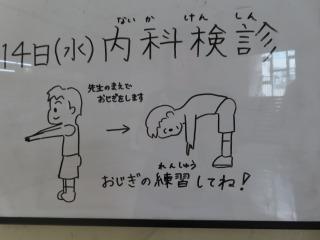 ないか けんしん
14日(水)内科検診
先生のまえで
おじぎをします
れんしゅう
おじぎの練習してね!